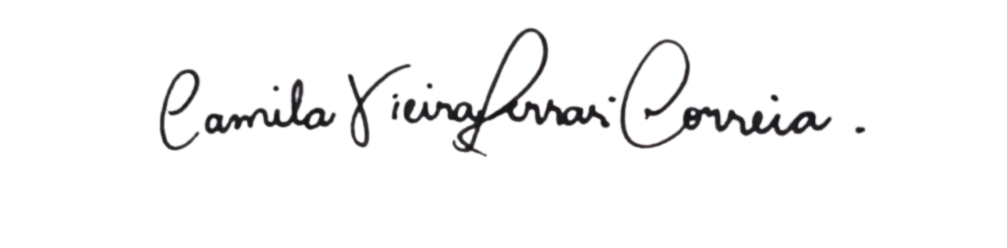 Camila Vieira Ferrari Correia.